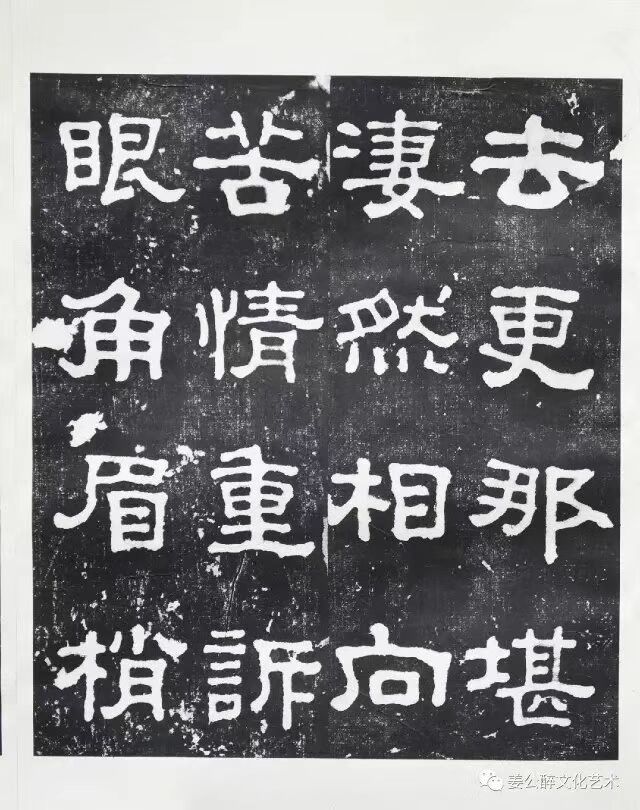 去更那堪
凄然相向
苦情重訴
眼角眉梢
姜公醉文化艺术